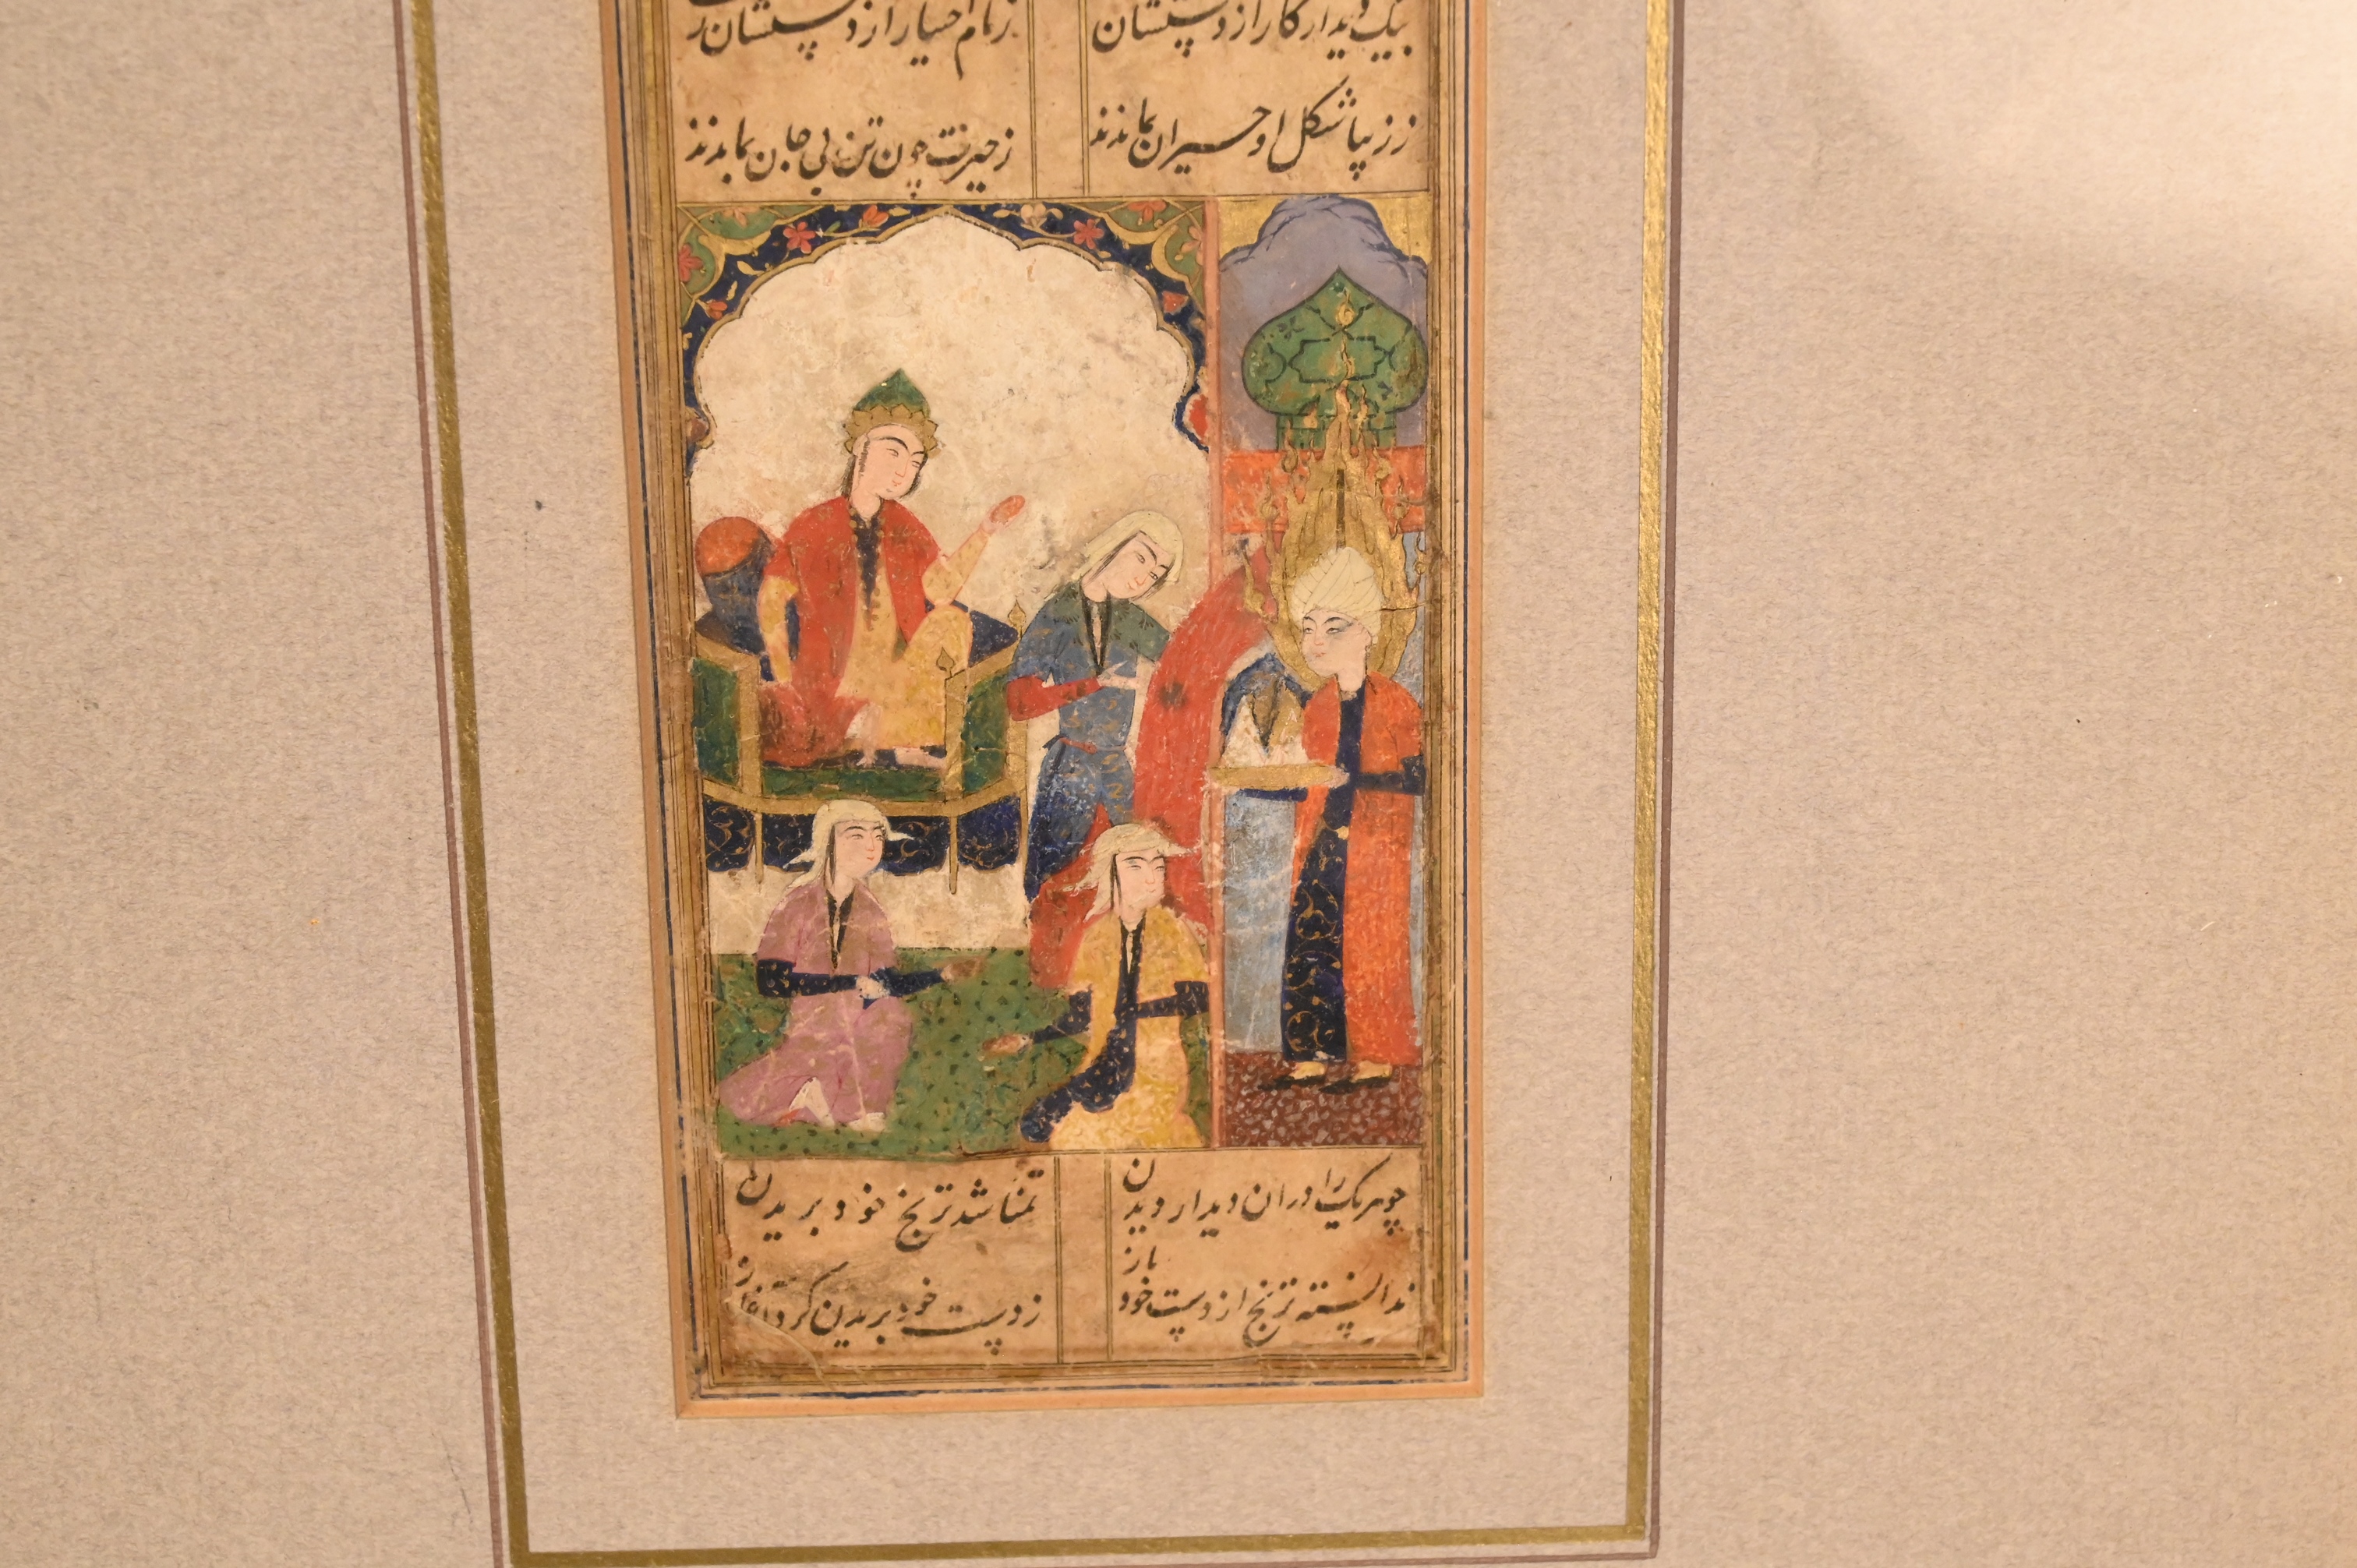 بیک دیدار کار از دستشان
زمام اختیار از دستشان
ز زیبا شکل او حیران بماندند
ز حیرت چون تن بی جان بماندند
چو هریک را در ان دیدار دیدن
تمنا شد ترنج خود بریدن
ندانسته ترنج از دست خود باز
ز دست خود بریدن کرد آغاز